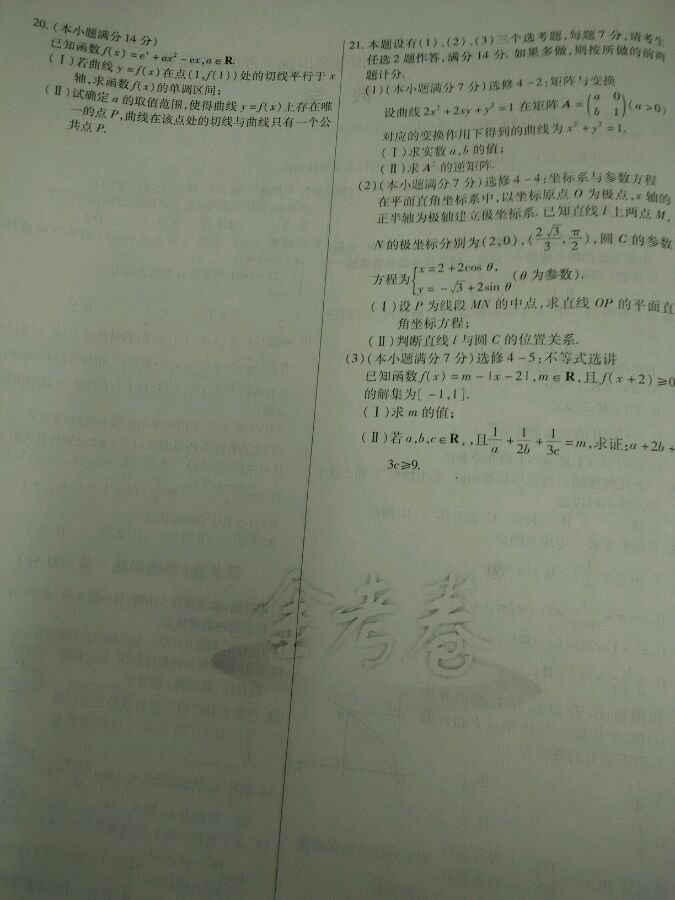 20. (本小题满分14分)
已知函数f(x)=eˣ+ax²-ex,a∈R.
(Ⅰ)若曲线y=f(x)在点(1,f(1))处的切线平行于x
轴,求函数f(x)的单调区间;
(Ⅱ)试确定a的取值范围,使得曲线y=f(x)上存在唯
一的点P,曲线在该点处的切线与曲线只有一个公
共点P.
21. 本题设有(1),(2),(3)三个选考题,每题7分,请考生
任选2题作答,满分14分.如果多做,则按所做的前两
题计分.
(1)(本小题满分7分)选修4-2:矩阵与变换
设曲线2x²+2xy+y²=1在矩阵A=(a 0; b 1)(a>0)
对应的变换作用下得到的曲线为x²+y²=1.
(Ⅰ)求实数a,b的值;
(Ⅱ)求A²的逆矩阵.
(2)(本小题满分7分)选修4-4:坐标系与参数方程
在平面直角坐标系中,以坐标原点O为极点,x轴的
正半轴为极轴建立极坐标系.已知直线l上两点M、
N的极坐标分别为(2,0),(2√3/3,π/2),圆C的参数
方程为{x=2+2cos θ, y=-√3+2sin θ (θ为参数).
(Ⅰ)设P为线段MN的中点,求直线OP的平面直
角坐标方程;
(Ⅱ)判断直线l与圆C的位置关系.
(3)(本小题满分7分)选修4-5:不等式选讲
已知函数f(x)=m-|x-2|,m∈R,且f(x+2)≥0
的解集为[-1,1].
(Ⅰ)求m的值;
(Ⅱ)若a,b,c∈R₊,且1/a+1/2b+1/3c=m,求证:a+2b+
3c≥9.
金考卷®